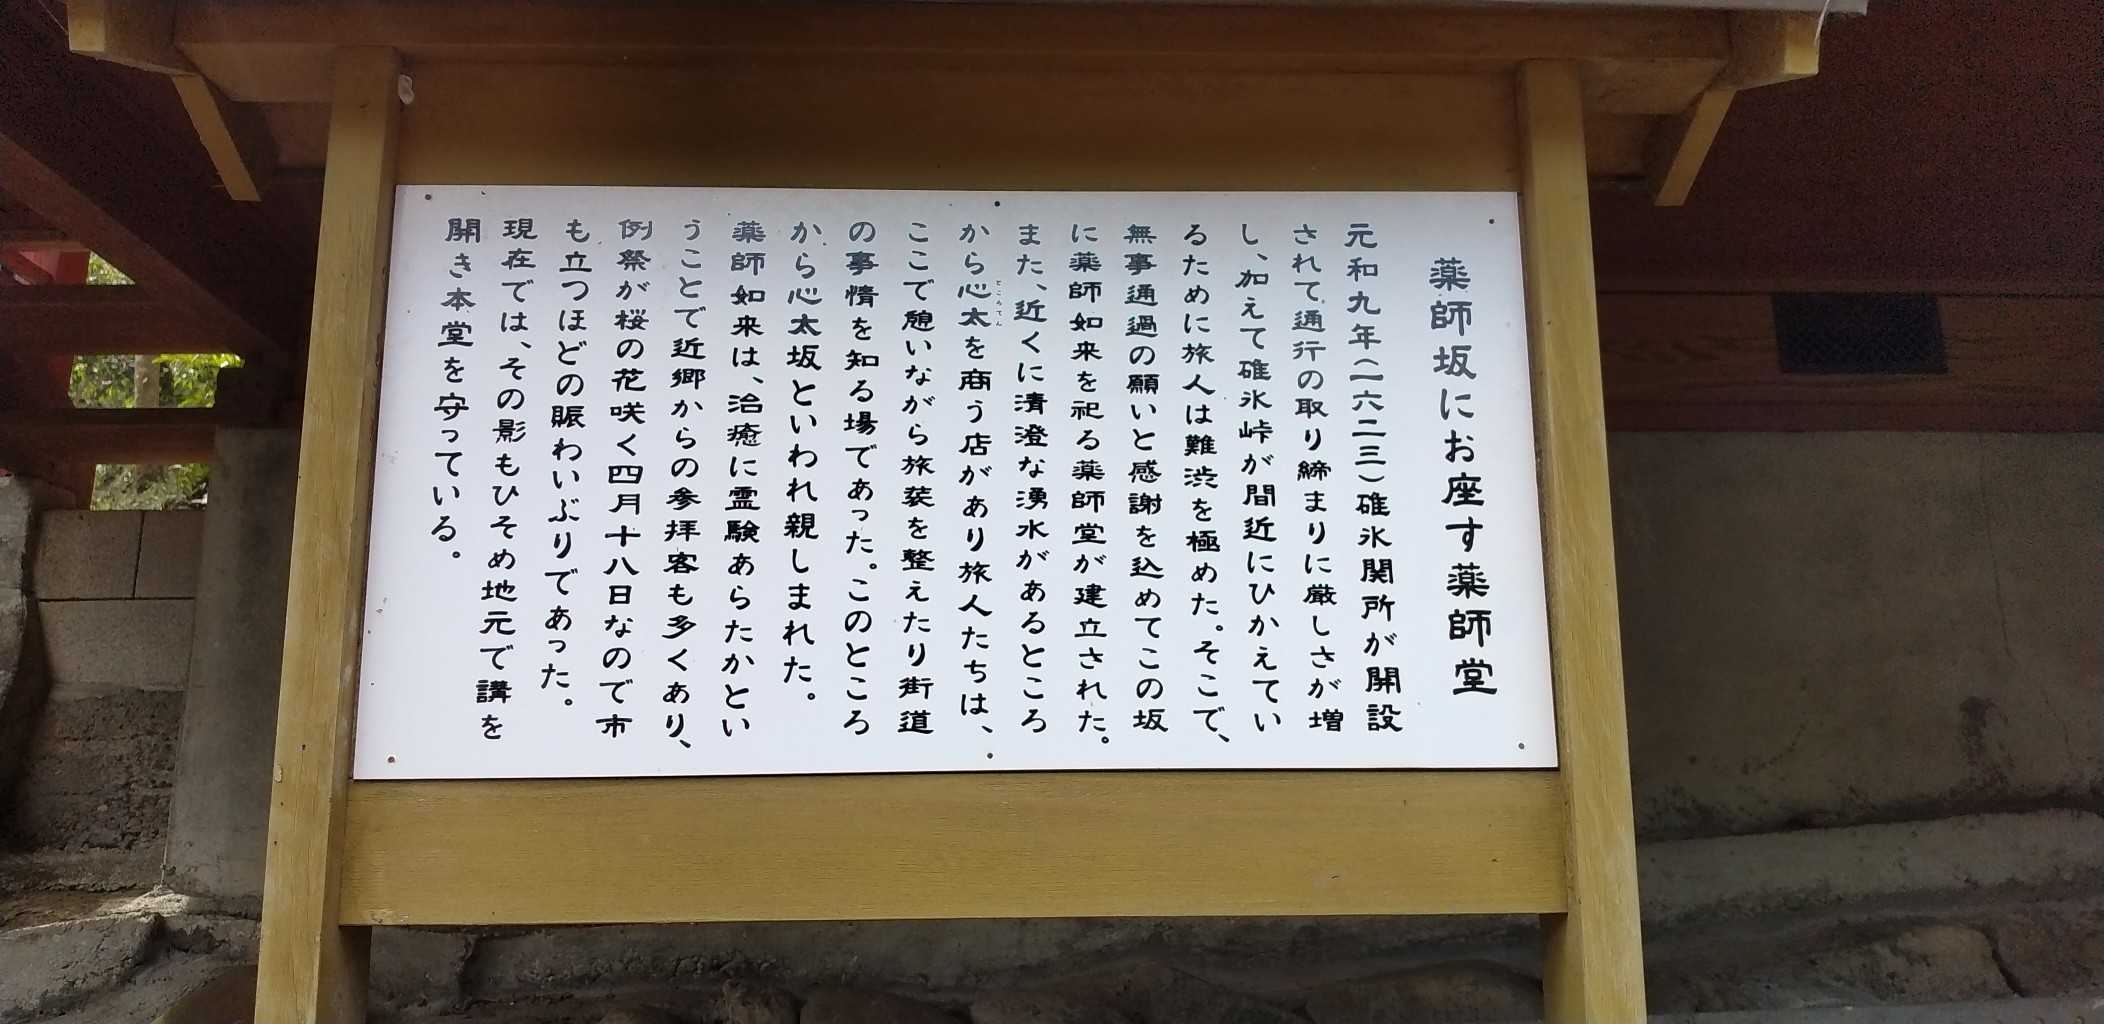 薬師坂にお座す薬師堂
元和九年(一六二三)碓氷関所が開設
されて通行の取り締まりに厳しさが増
し、加えて碓氷峠が間近にひかえてい
るために旅人は難渋を極めた。そこで、
無事通過の願いと感謝を込めてこの坂
に薬師如来を祀る薬師堂が建立された。
また、近くに清澄な湧水があるところ
から心太を商う店があり旅人たちは、
ところてん
ここで憩いながら旅装を整えたり街道
の事情を知る場であった。このところ
から心太坂といわれ親しまれた。
薬師如来は、治癒に霊験あらたかとい
うことで近郷からの参拝客も多くあり、
例祭が桜の花咲く四月十八日なので市
も立つほどの賑わいぶりであった。
現在では、その影もひそめ地元で講を
開き本堂を守っている。